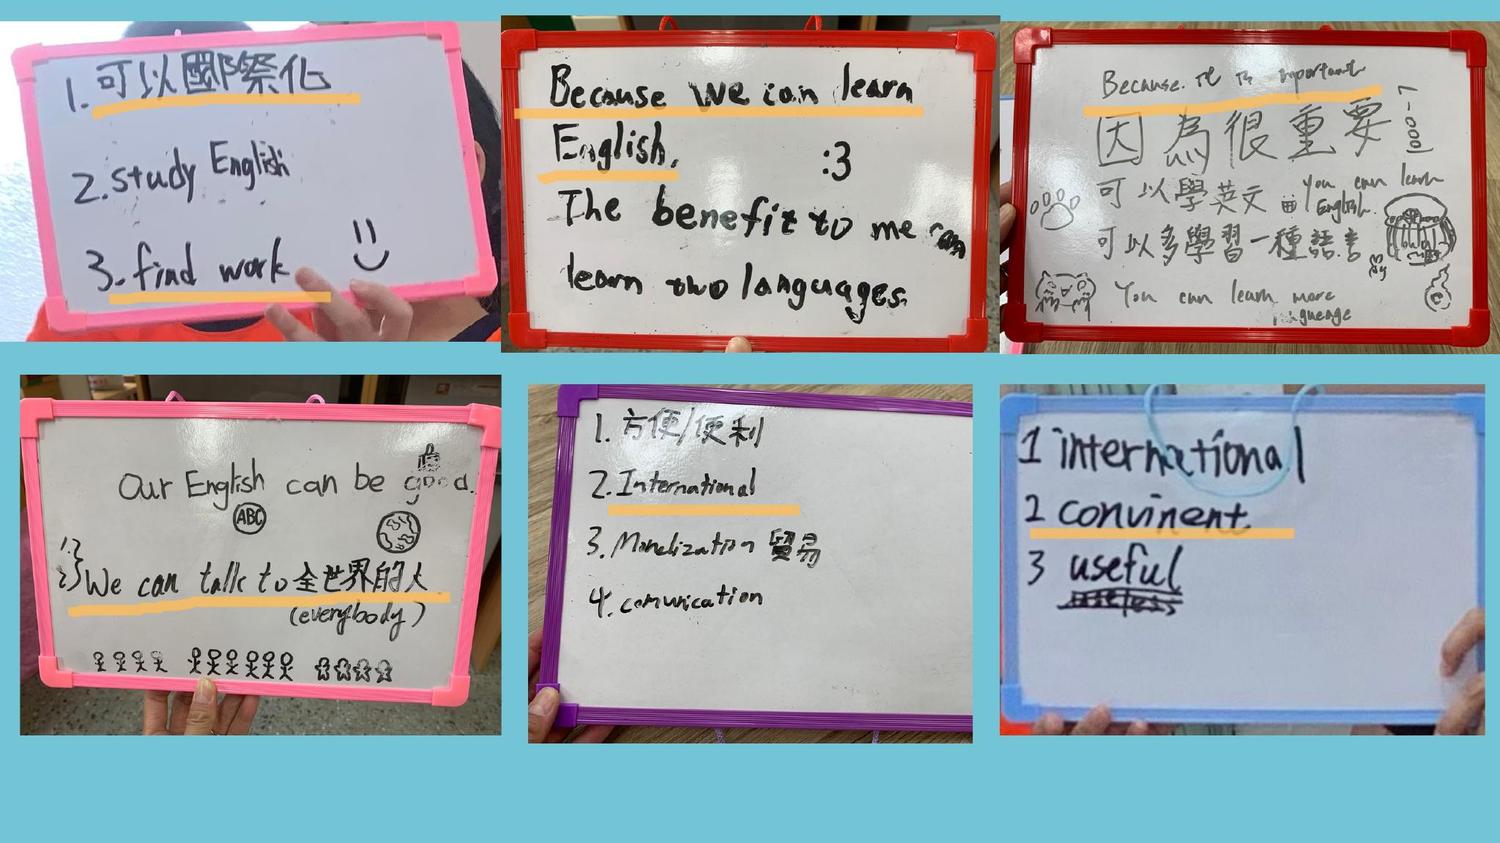 1. 可以國際化
2. study English
3. find work
Because we can learn
English.
:3
The benefit to me can
learn two languages.
Because it is important
因為很重要
可以學英文
You can learn
English.
可以多學習一種語言
You can learn more
Our English can be good.
ABC
1.
2.
We can talk to 全世界的人
(everybody)
1. 方便/便利
2. International
3. Monelization 貿易
4. comurication
1 international
2 convinent
3 useful
useless